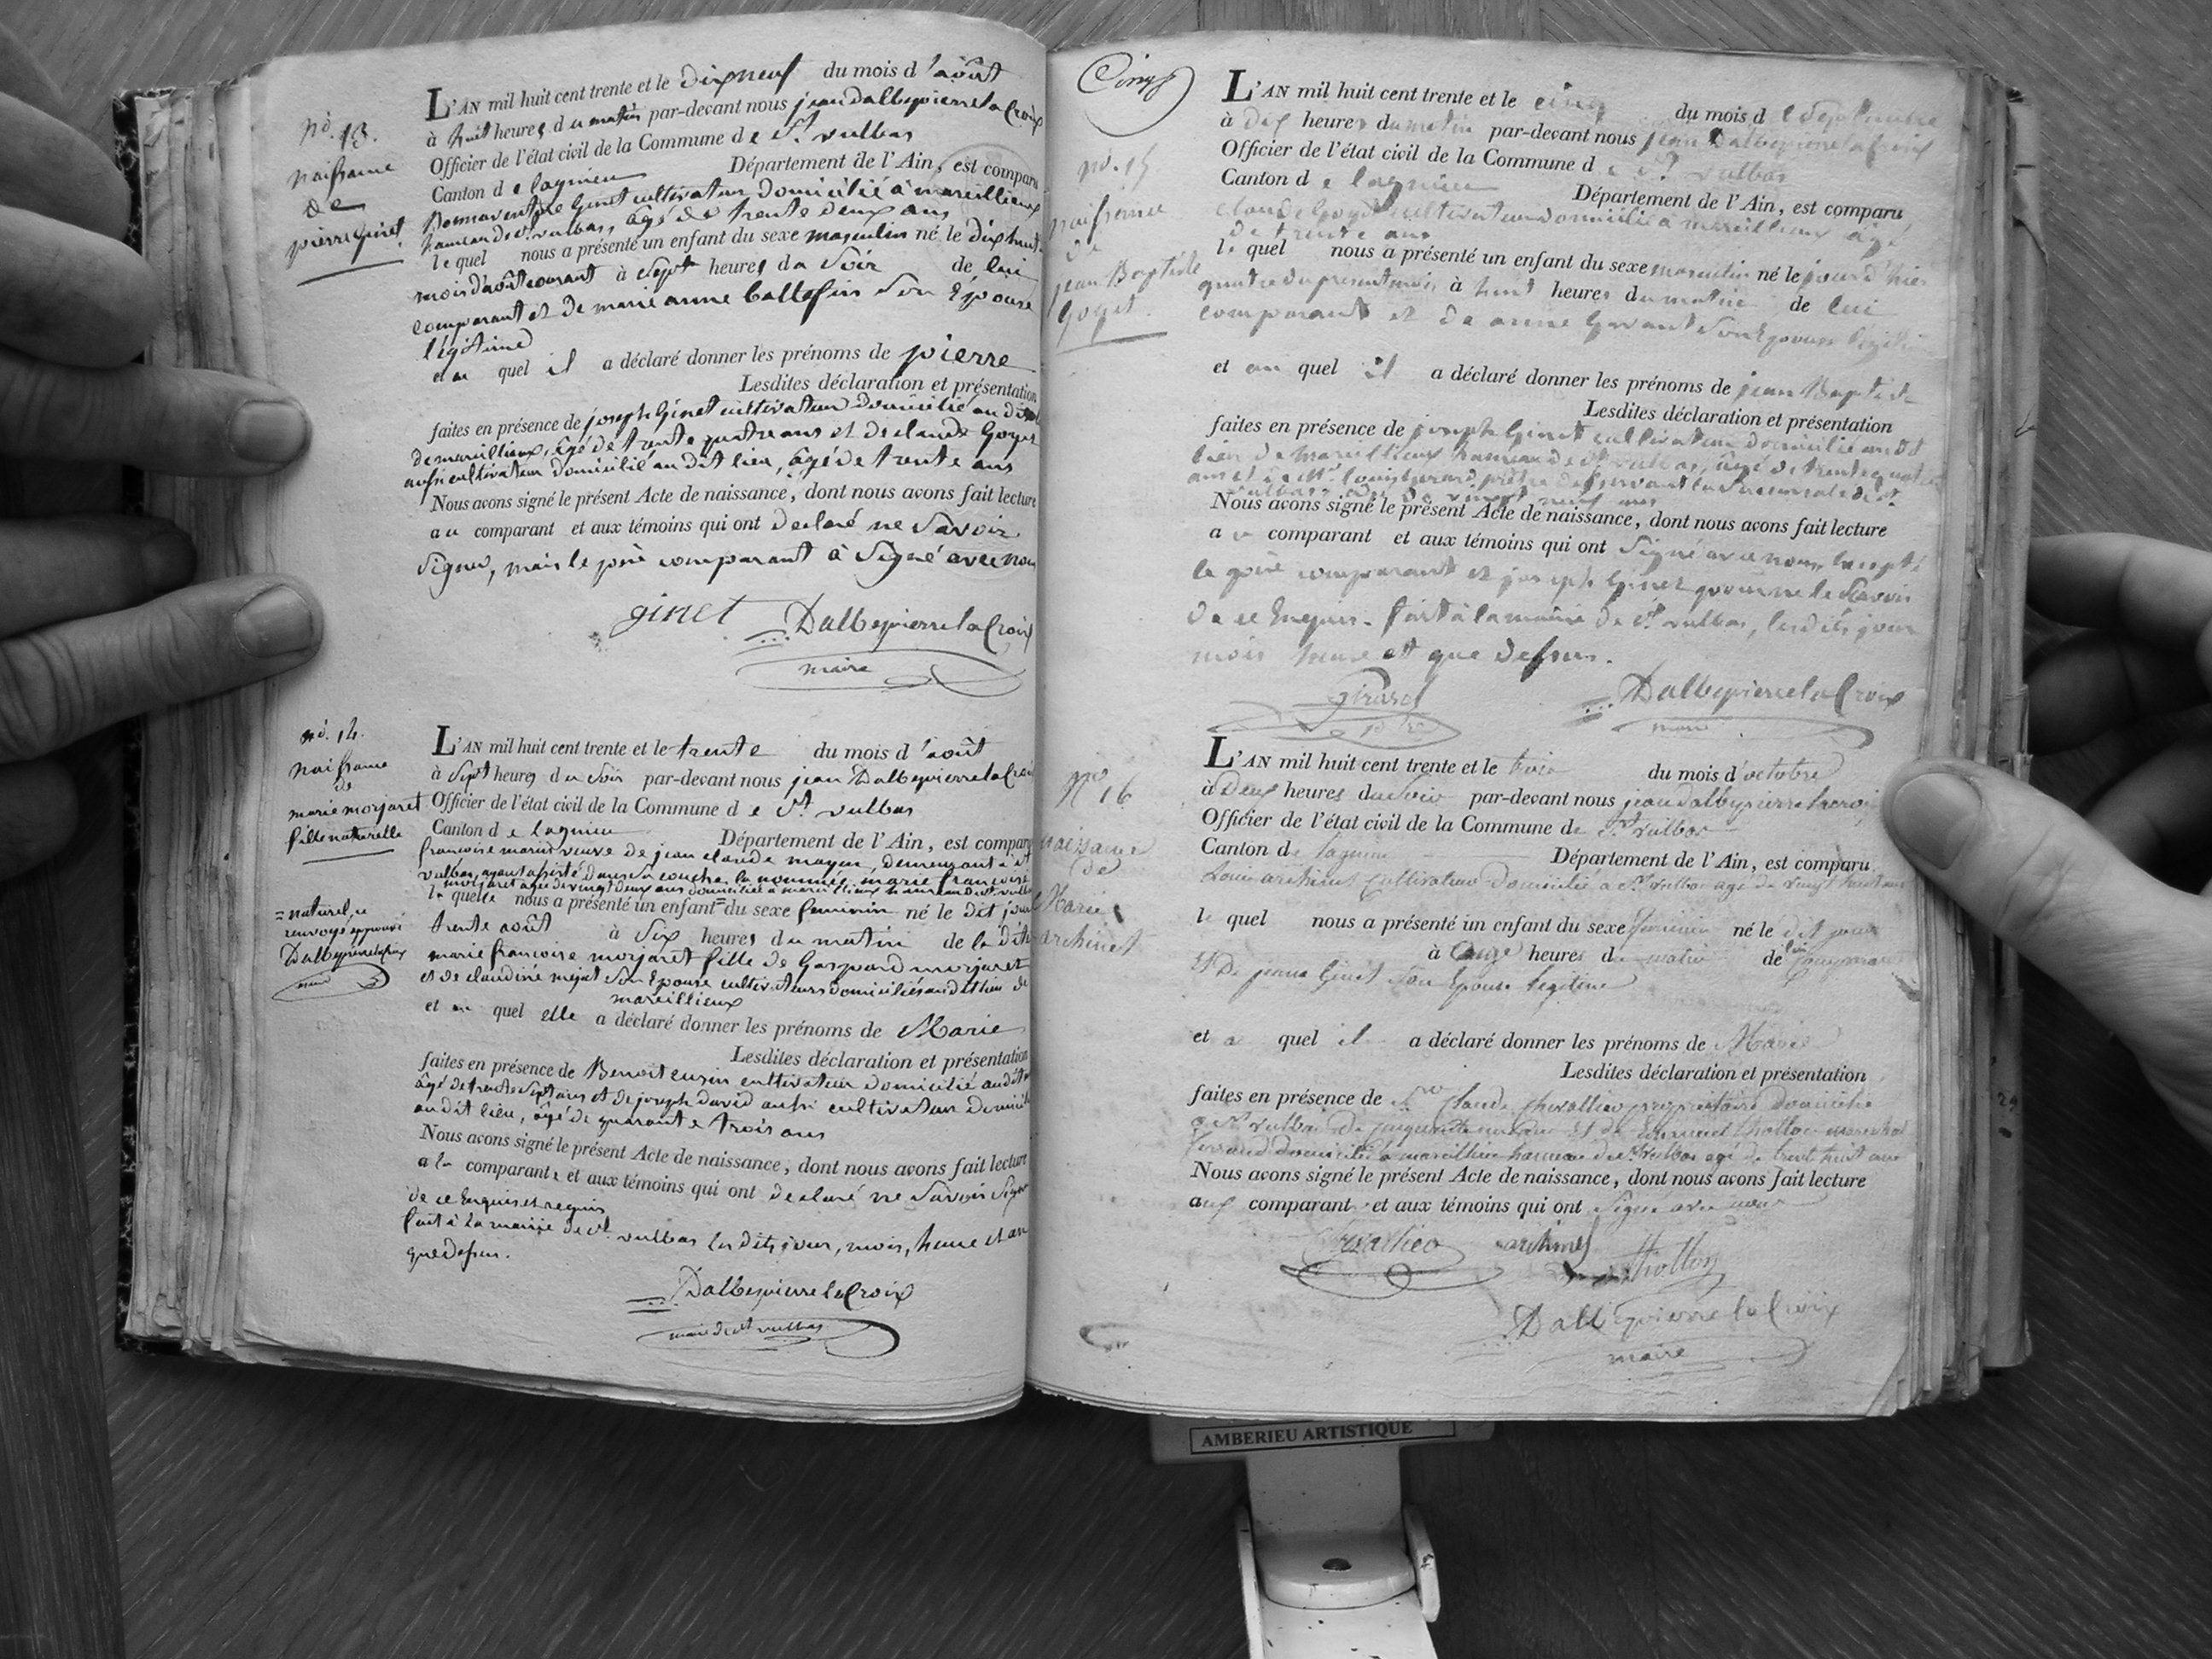 no. 13.
naissance
de
pierre Ginet
L'AN mil huit cent trente et le dix neuf du mois d'août
à huit heures du matin par-devant nous jean dalbepierre la Croix
Officier de l'état civil de la Commune de St. vulbas
Canton de lagnieu Département de l'Ain, est comparu
Bonnaventure Ginet cultivateur domicilié à mareillieux
hameau de St. vulbas, âgé de trente deux ans
lequel nous a présenté un enfant du sexe masculin né le dix huit
mois d'août courant à Sept heures du Soir de lui
comparant et de marie anne Son Epouse
légitime
et au quel il a déclaré donner les prénoms de pierre
Lesdites déclaration et présentation
faites en présence de joseph Ginet cultivateur domicilié au dit
de mareillieux, âgé de trente quatre ans et de claude Goyet
aussi cultivateur domicilié au dit lieu, âgé de trente ans
Nous avons signé le présent Acte de naissance, dont nous avons fait lecture
au comparant et aux témoins qui ont declaré ne Savoir
Signer, mais le père comparant à Signé avec nous
ginet Dalbepierre la Croix
maire
no. 14.
naissance
de
marie morjaret
fille naturelle
= naturel, ce
renvoi approuvé
Dalbepierre la Croix
maire
L'AN mil huit cent trente et le trente du mois d'août
à Sept heures du Soir par-devant nous jean Dalbepierre la Croix
Officier de l'état civil de la Commune de St. vulbas
Canton de lagnieu Département de l'Ain, est comparu
francoise marin veuve de jean claude mayeu, demeurant à St.
vulbas, ayant assisté dans sa couche la nommée marie francoise
morjaret agée de vingt deux ans domiciliée à mareillieux hameau de St. vulbas
laquelle nous a présenté un enfant = du sexe feminin né le dit jour
trente août à Six heures du matin de la dite
marie francoise morjaret fille de Gaspard morjaret
et de claudine mejat Son Epouse cultivateurs domiciliés au dit lieu de
mareillieux
et au quel elle a déclaré donner les prénoms de Marie
Lesdites déclaration et présentation
faites en présence de Benoit cultivateur domicilié au dit
âgé de trente Sept ans et de joseph david aussi cultivateur domicilié
au dit lieu, âgé de quarante trois ans
Nous avons signé le présent Acte de naissance, dont nous avons fait lecture
à la comparante et aux témoins qui ont declaré ne Savoir Signer
de ce Enquis et requis
fait à la mairie de St. vulbas les dits jour, mois, heure et an
que dessus.
Dalbepierre la Croix
maire de St. vulbas
Cinq
no. 15
naissance
de
jean Baptiste
Goyet
L'AN mil huit cent trente et le cinq du mois de Septembre
à dix heures du matin par-devant nous jean Dalbepierre la Croix
Officier de l'état civil de la Commune de St. vulbas
Canton de lagnieu Département de l'Ain, est comparu
claude Goyet cultivateur domicilié à mareillieux âgé
de trente ans
lequel nous a présenté un enfant du sexe masculin né le jour d'hier
quatre du present mois à huit heures du matin de lui
comparant et de anne Son Epouse légitime
et au quel il a déclaré donner les prénoms de jean Baptiste
Lesdites déclaration et présentation
faites en présence de joseph Ginet cultivateur domicilié au dit
lieu de mareillieux hameau de St. vulbas, âgé de trente quatre
ans et de Mr. prêtre desservant la Succursale de St.
vulbas, âgé de vingt neuf ans
Nous avons signé le présent Acte de naissance, dont nous avons fait lecture
au comparant et aux témoins qui ont Signé avec nous, Excepté
le père comparant et joseph Ginet pour ne le Savoir
de ce Enquis. fait à la mairie de St. vulbas, les dits jour
mois heure et que dessus.
girard Dalbepierre la Croix
maire
No 16
naissance
de
Marie
archinet
L'AN mil huit cent trente et le trois du mois d'octobre
à Deux heures du Soir par-devant nous jean dalbepierre lacroix
Officier de l'état civil de la Commune de St. vulbas
Canton de lagnieu Département de l'Ain, est comparu
archinet Cultivateur domicilié à St. vulbas agé de vingt huit ans
lequel nous a présenté un enfant du sexe feminin né le dit jour
à onze heures du matin de lui
Et De jeane Ginet Son Epouse legitime
et a quel il a déclaré donner les prénoms de Marie
Lesdites déclaration et présentation
faites en présence de Sr Claude Chevallier propriétaire Domicilié
a St. vulbas et de thollon marechal
ferrand domicilié à mareillieu hameau de St. Vulbas agé de trent huit ans
Nous avons signé le présent Acte de naissance, dont nous avons fait lecture
aux comparant et aux témoins qui ont Signé avec nous
Chevallier archinet thollon
Dalbepierre la Croix
maire
29
AMBERIEU ARTISTIQUE